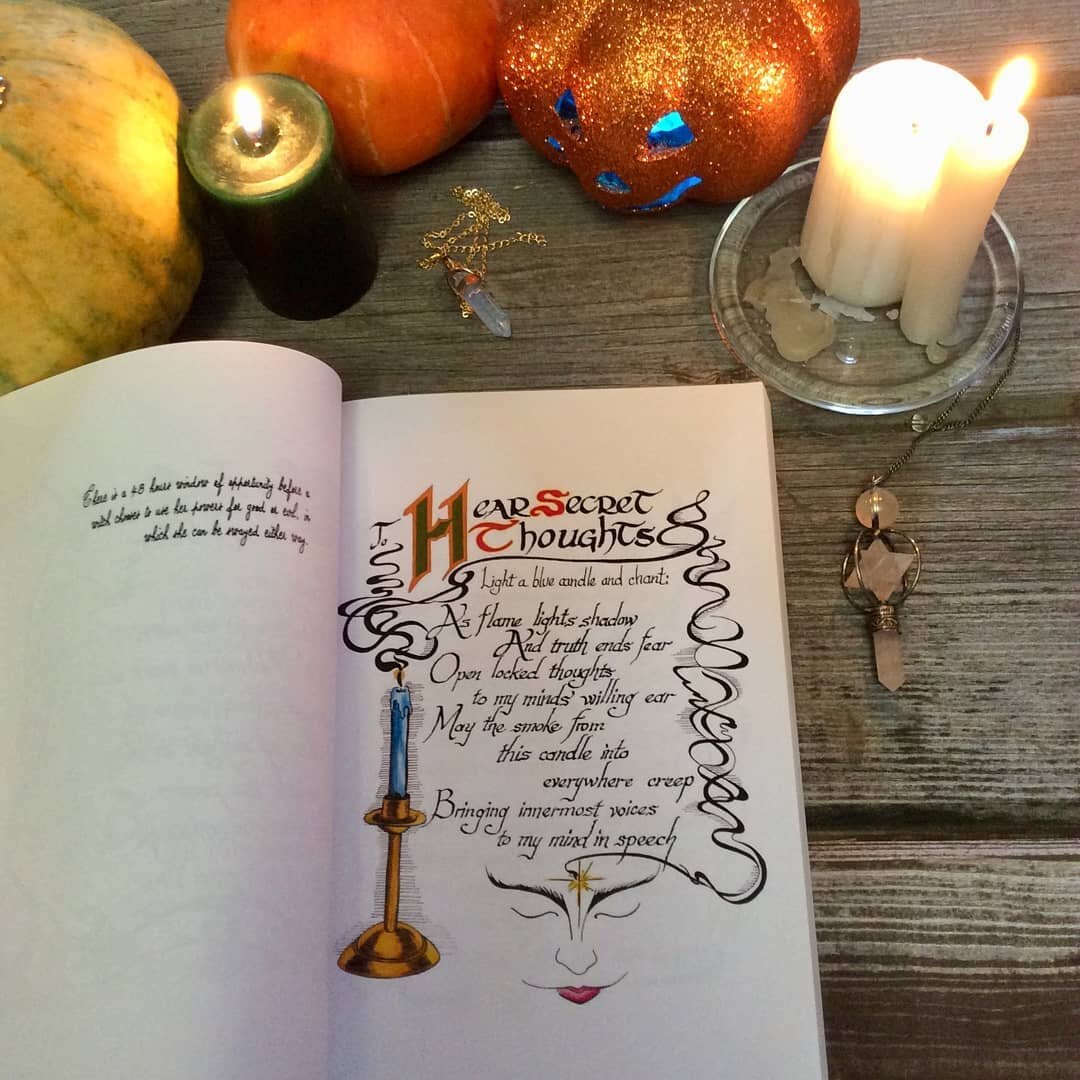 There is a 48 hour window of opportunity before a
witch chooses to use her powers for good or evil, in
which she can be swayed either way.
To Hear Secret
Thoughts
Light a blue candle and chant:
As flame lights shadow
And truth ends fear
Open locked thoughts
to my minds' willing ear
May the smoke from
this candle into
everywhere creep
Bringing innermost voices
to my mind in speech